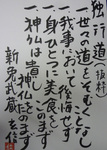 独行道(抜粋)
一、世々の道をそむくことなし
一、我事において後悔せず
一、身ひとつに美食をこのまず
一、神仏は貴し神仏をたのまず
新免武蔵